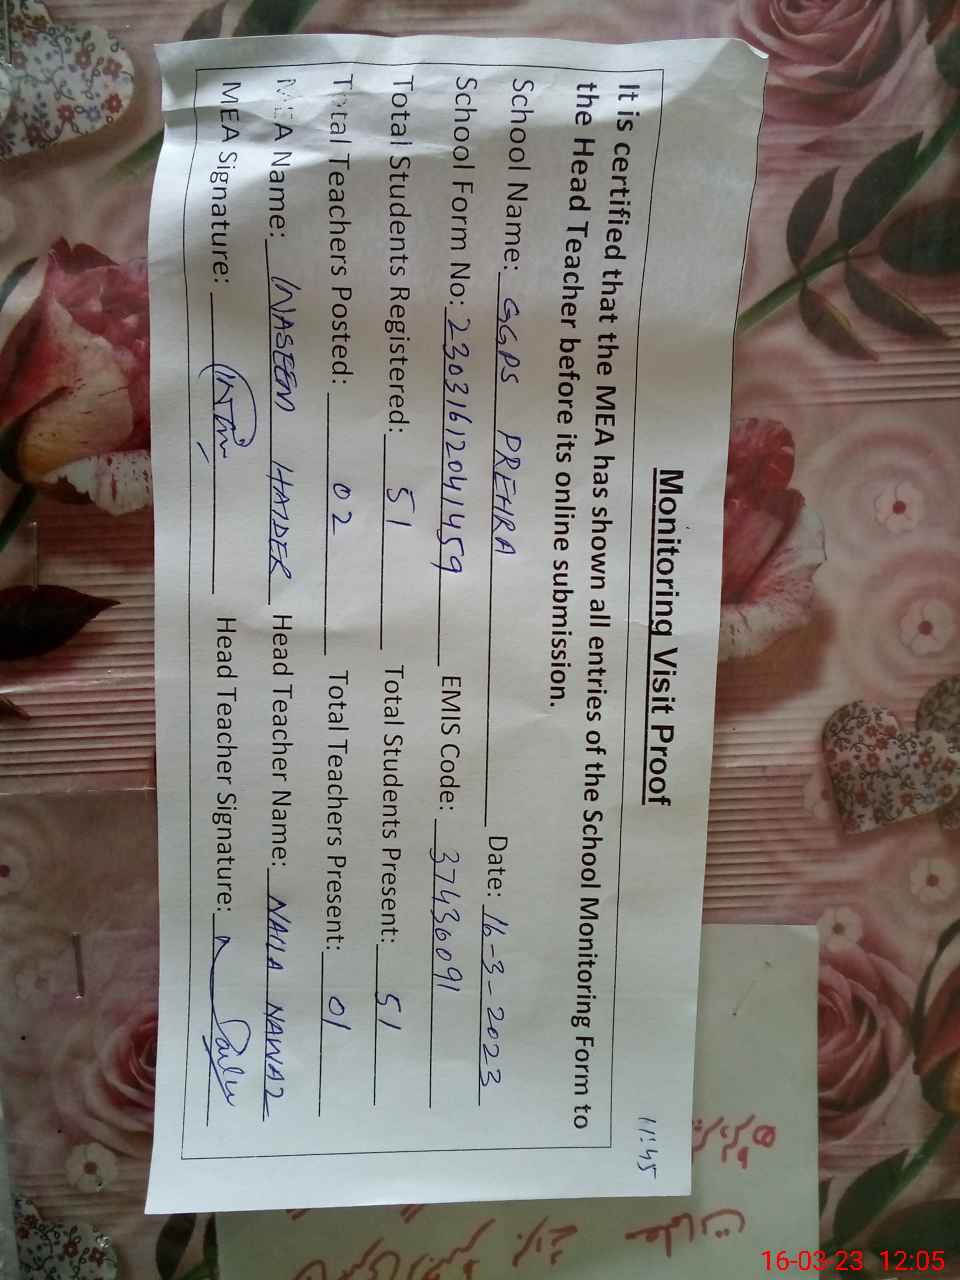 11:45
Monitoring Visit Proof
It is certified that the MEA has shown all entries of the School Monitoring Form to
the Head Teacher before its online submission.
School Name: GGPS PREHRA Date: 16-3-2023
School Form No: 23031612041459 EMIS Code: 37430091
Total Students Registered: 51 Total Students Present: 51
Total Teachers Posted: 02 Total Teachers Present: 01
MEA Name: WASEEM HAIDER Head Teacher Name: NAILA NAWAZ
MEA Signature: Head Teacher Signature:
16-03-23 12:05